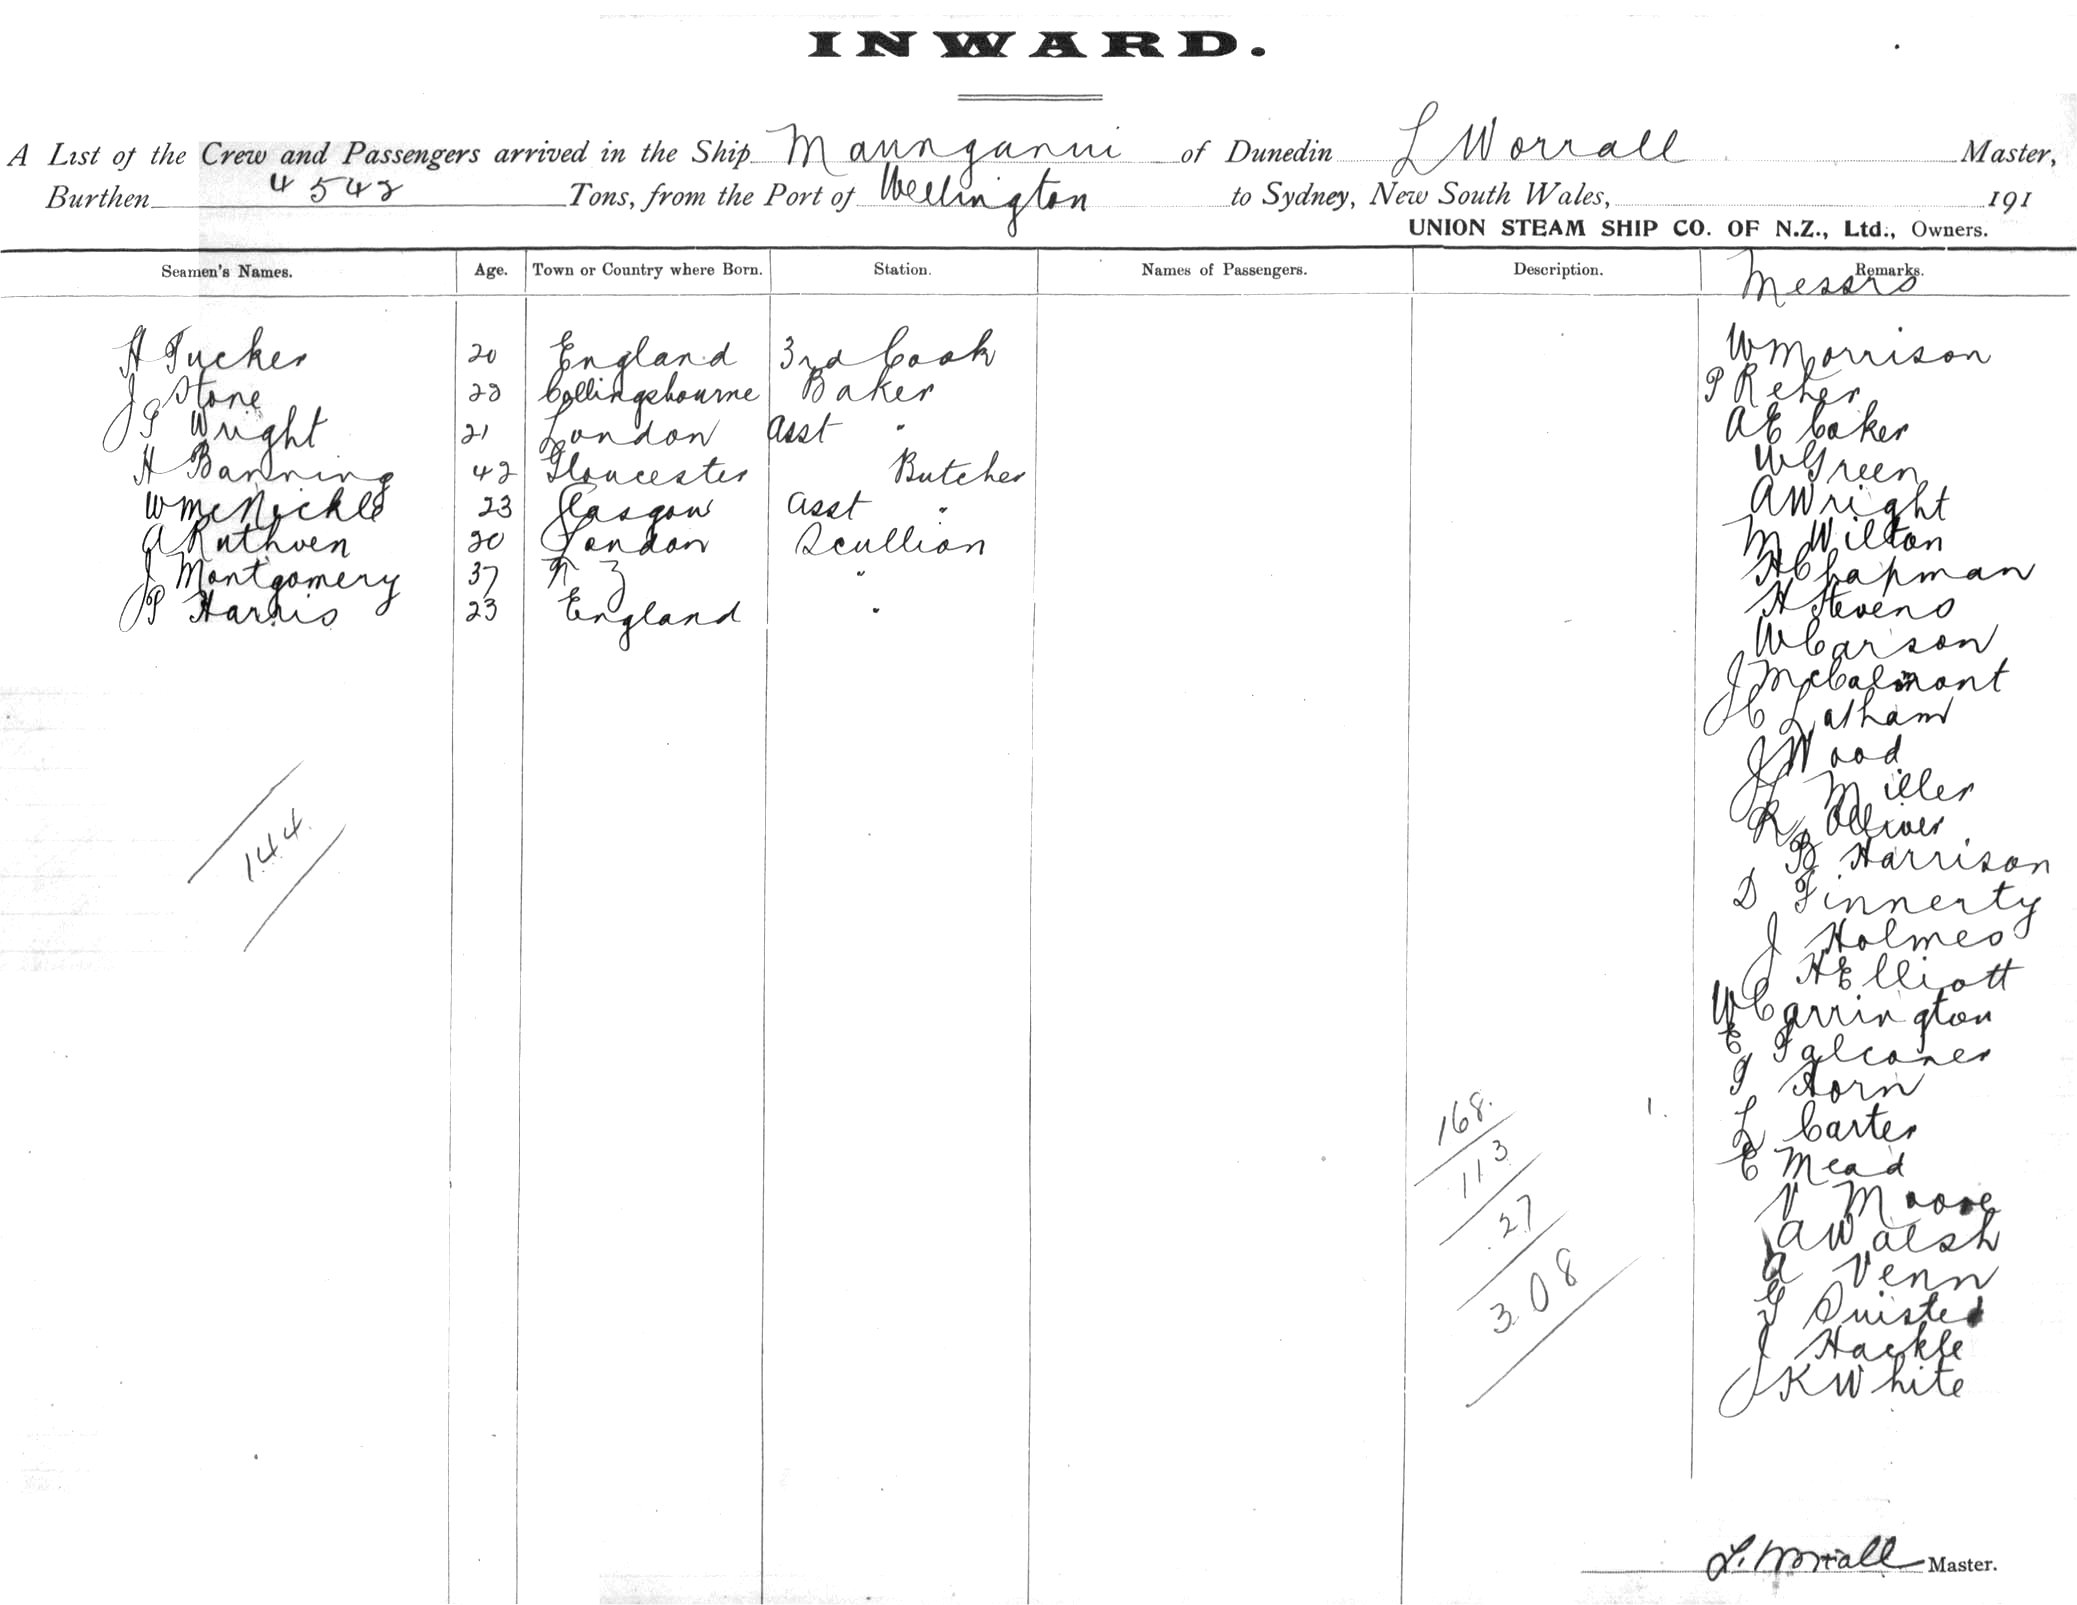 INWARD.
A List of the Crew and Passengers arrived in the Ship Maunganui of Dunedin L Worrall Master,
Burthen 4542 Tons, from the Port of Wellington to Sydney, New South Wales, 191
UNION STEAM SHIP CO. OF N.Z., Ltd., Owners.
Seamen's Names. Age. Town or Country where Born. Station. Names of Passengers. Description. Remarks.
Messrs
H Tucker 20 England 3rd Cook W Morrison
J Stone 22 Collingsbourne Baker P Reher
J G Wright 21 London Asst " A E Coker
H Banning 42 Gloucester Butcher W Green
W McNickle 23 Glasgow Asst " A Wright
A Ruthven 20 London Scullion M Wilton
J Montgomery 37 N Z " H Chapman
J P Harris 23 England " H Stevens
W Carson
J McCalmont
J C Latham
J Wood
J Miller
R Olliver
B Harrison
144.
D Finnerty
J Holmes
J H Elliott
W Carrington
E Falconer
T Horn
168. 1.
L Carter
113
C Mead
27
V Moore
A Walsh
308
A Venn
G Suisted
J Hackle
J K White
L. Worrall Master.